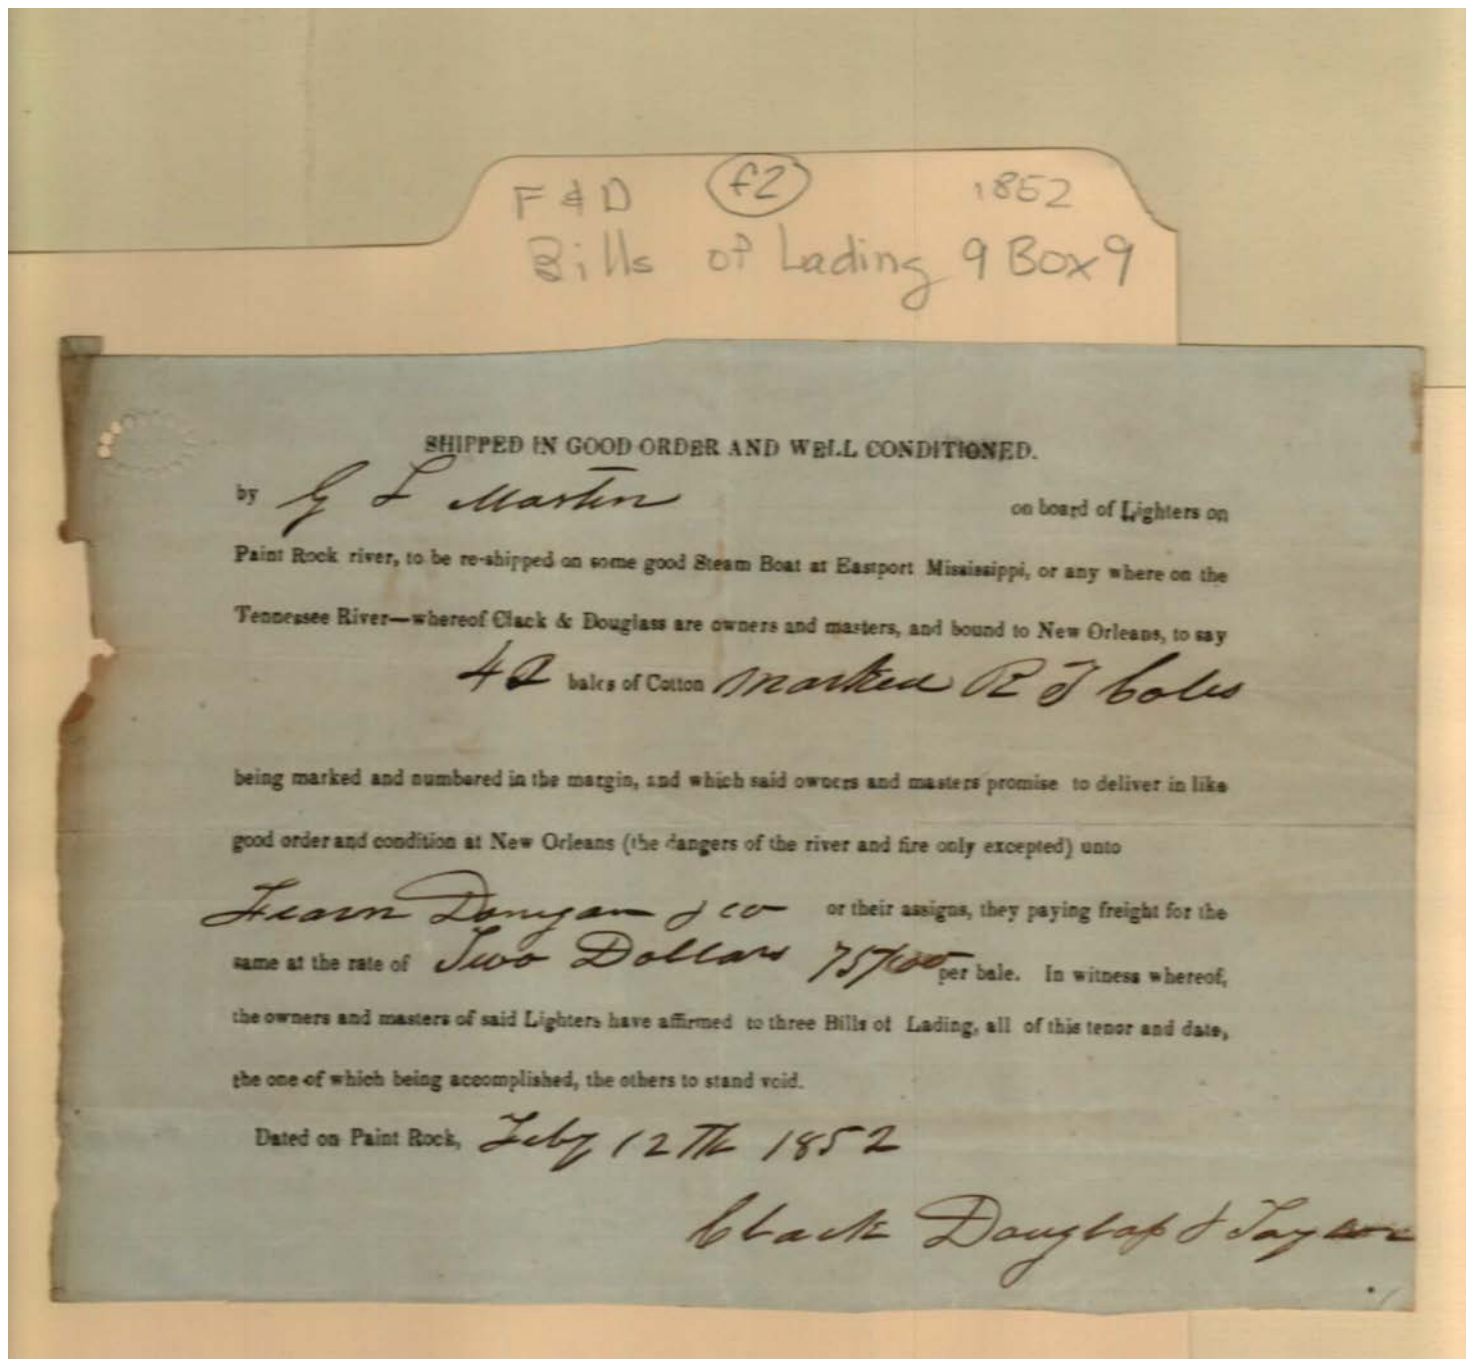 F & D f2 1852
Bills of Lading 9 Box 9
SHIPPED IN GOOD ORDER AND WELL CONDITIONED.
by G L Martin on board of Lighters on
Paint Rock river, to be re-shipped on some good Steam Boat at Eastport Mississippi, or any where on the
Tennessee River—whereof Clack & Douglass are owners and masters, and bound to New Orleans, to say
42 bales of Cotton Marked R T Coles
being marked and numbered in the margin, and which said owners and masters promise to deliver in like
good order and condition at New Orleans (the dangers of the river and fire only excepted) unto
Fearn Donegan & co or their assigns, they paying freight for the
same at the rate of Two Dollars 75/100 per bale. In witness whereof,
the owners and masters of said Lighters have affirmed to three Bills of Lading, all of this tenor and date,
the one of which being accomplished, the others to stand void.
Dated on Paint Rock, Feby 12Th 1852
Clack Douglass & Taylor